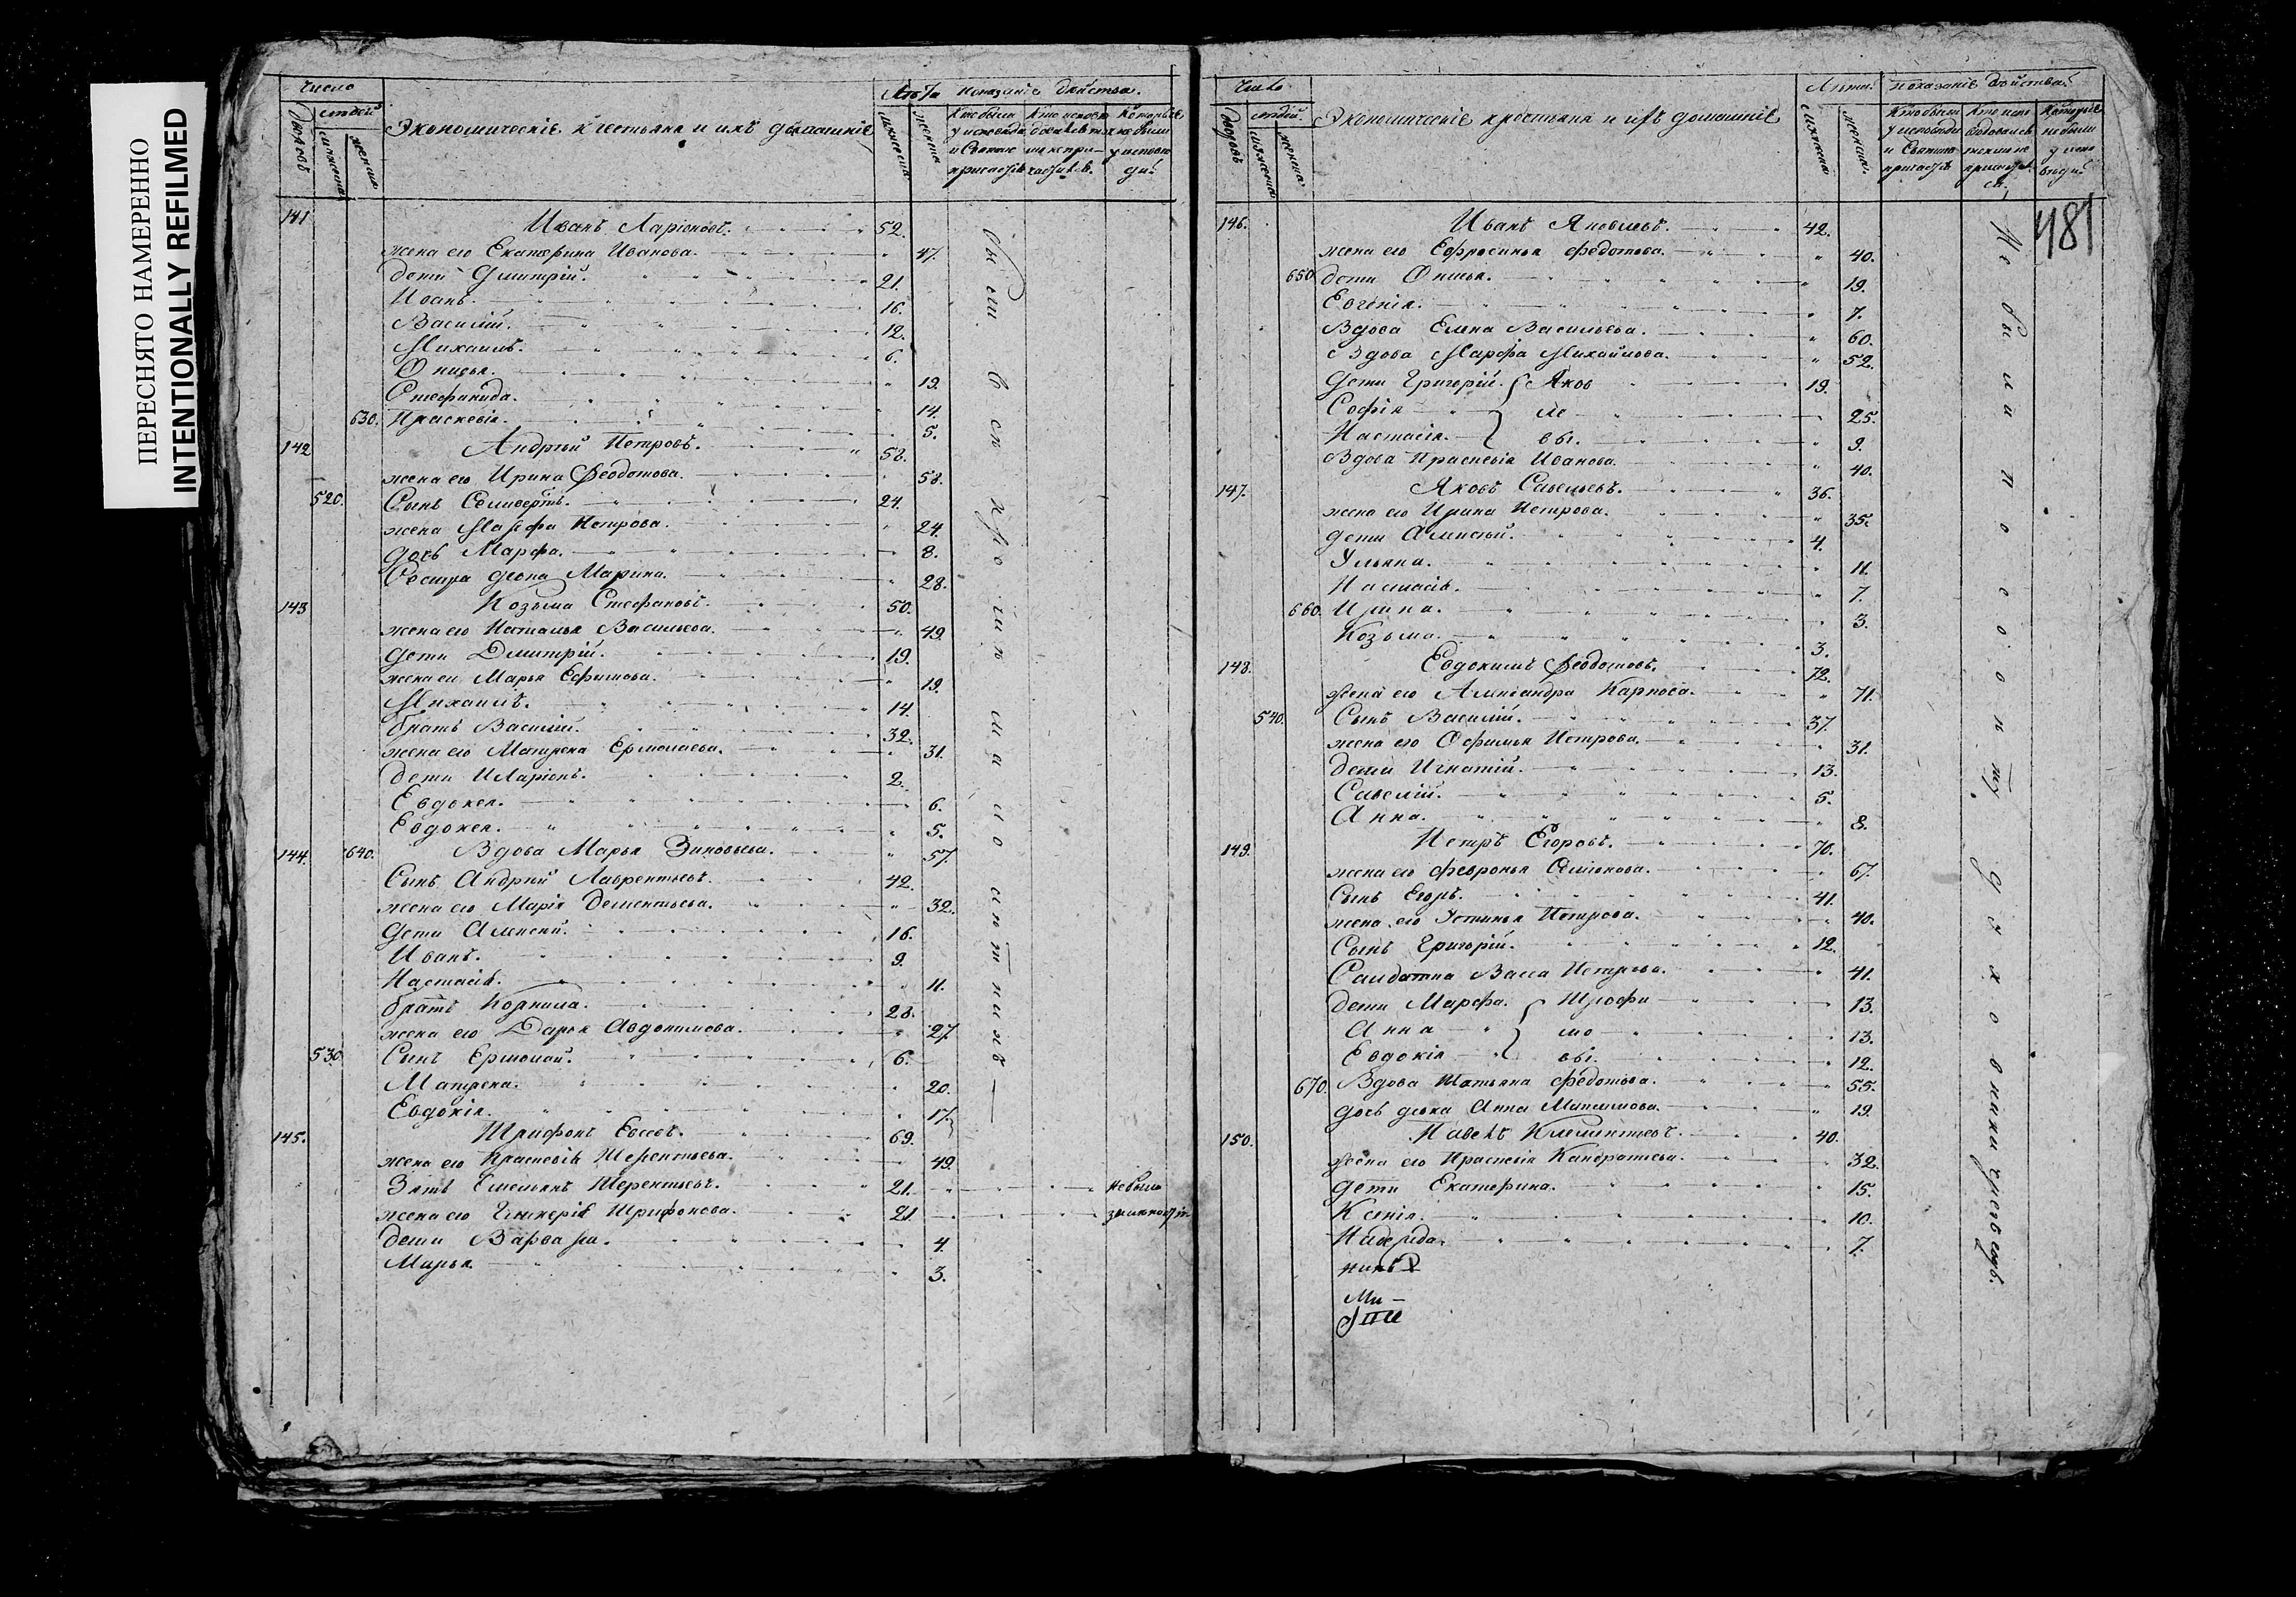 ПЕРЕСНЯТО НАМЕРЕННО
INTENTIONALLY REFILMED
Число
дворовъ
людей
мужеска
женска
Экономическіе крестьяне и ихъ домашніе
Лѣта
мужеска
женска
Показаніе действа.
141
Иванъ Ларіоновъ. 52.
жена его Екатерина Иванова. 47.
дети Дмитрій. 21.
Иванъ. 16.
Василій. 12.
Михаилъ. 6.
Онисья. 19.
Стефанида. 14.
630. Праскевія. 5.
142 Андрей Петровъ. 58.
жена его Ирина Феодотова. 58.
520. Сынъ Селиверстъ. 24.
жена Марфа Петрова. 24.
дочь Марфа. 8.
Сестра девка Марина. 28.
143 Козьма Стефановъ. 50.
жена его Наталья Васильева. 49.
дети Дмитрій. 19.
жена ево Марья Ефимова. 19.
Михаилъ. 14.
братъ Василій. 32.
жена его Матрена Ермолаева. 31.
дети Иларіонъ. 2.
Евдокея. 6.
Евдокея. 5.
144. 640. Вдова Марья Зиновьева. 57.
Сынъ Андрей Лаврентьевъ. 42.
жена его Марія Дементьева. 32.
дети Алексей. 16.
Иванъ. 9.
Настасія. 11.
братъ Корнила. 28.
жена его Дарья Авдокимова. 27.
530 Сынъ Ермолай. 6.
Матрена. 20.
Евдокія. 17.
145. Трифонъ Евсевъ. 69.
жена его Праскевія Терентьева. 49.
Зять Емельянъ Терентьевъ. 21. не были
жена его Гликерія Трифонова. 21.
дети Варвара. 4.
Марья 3.
Число
дворовъ
людей.
мужеска
женска
Экономическіе крестьяне и ихъ домашніе
Лѣта.
мужеска
женска
Показаніе действа.
481
146. Иванъ Яковлевъ. 42.
жена его Ефросинья Федотова. 40.
650 дети Онисья. 19.
Евгенія. 7.
Вдова Елена Васильева. 60.
Вдова Марфа Михайлова. 52.
дети Григорій. Яков 19.
Софія ле 25.
Настасія. вы. 9.
Вдова Праскевія Иванова. 40.
147. Яковъ Савельевъ. 36.
жена его Ирина Петрова. 35.
дети Алексей. 4.
Ульяна. 11.
Настасія. 7.
660. Ирина. 3.
Козьма. 3.
148. Евдокимъ Феодотовъ. 72.
жена его Александра Карпова. 71.
540. Сынъ Василій. 37.
жена его Офимья Петрова. 31.
дети Игнатій. 13.
Савелій. 5.
Анна. 8.
149. Петръ Егоровъ. 70.
жена его Февронья Семіонова. 67.
Сынъ Егоръ. 41.
жена его Устинья Петрова. 40.
Сынъ Григорій. 12.
Салдатка Васса Петрова. 41.
дети Марфа. Трофи 13.
Анна мо 13.
Евдокія вы. 12.
670. Вдова Татьяна Федотова. 55.
дочь девка Анна Максимова. 19.
150. Павелъ Климентьевъ. 40.
жена его Праскевія Кандратьева. 32.
дети Екатерина. 15.
Ксенія. 10.
Надежда. 7.